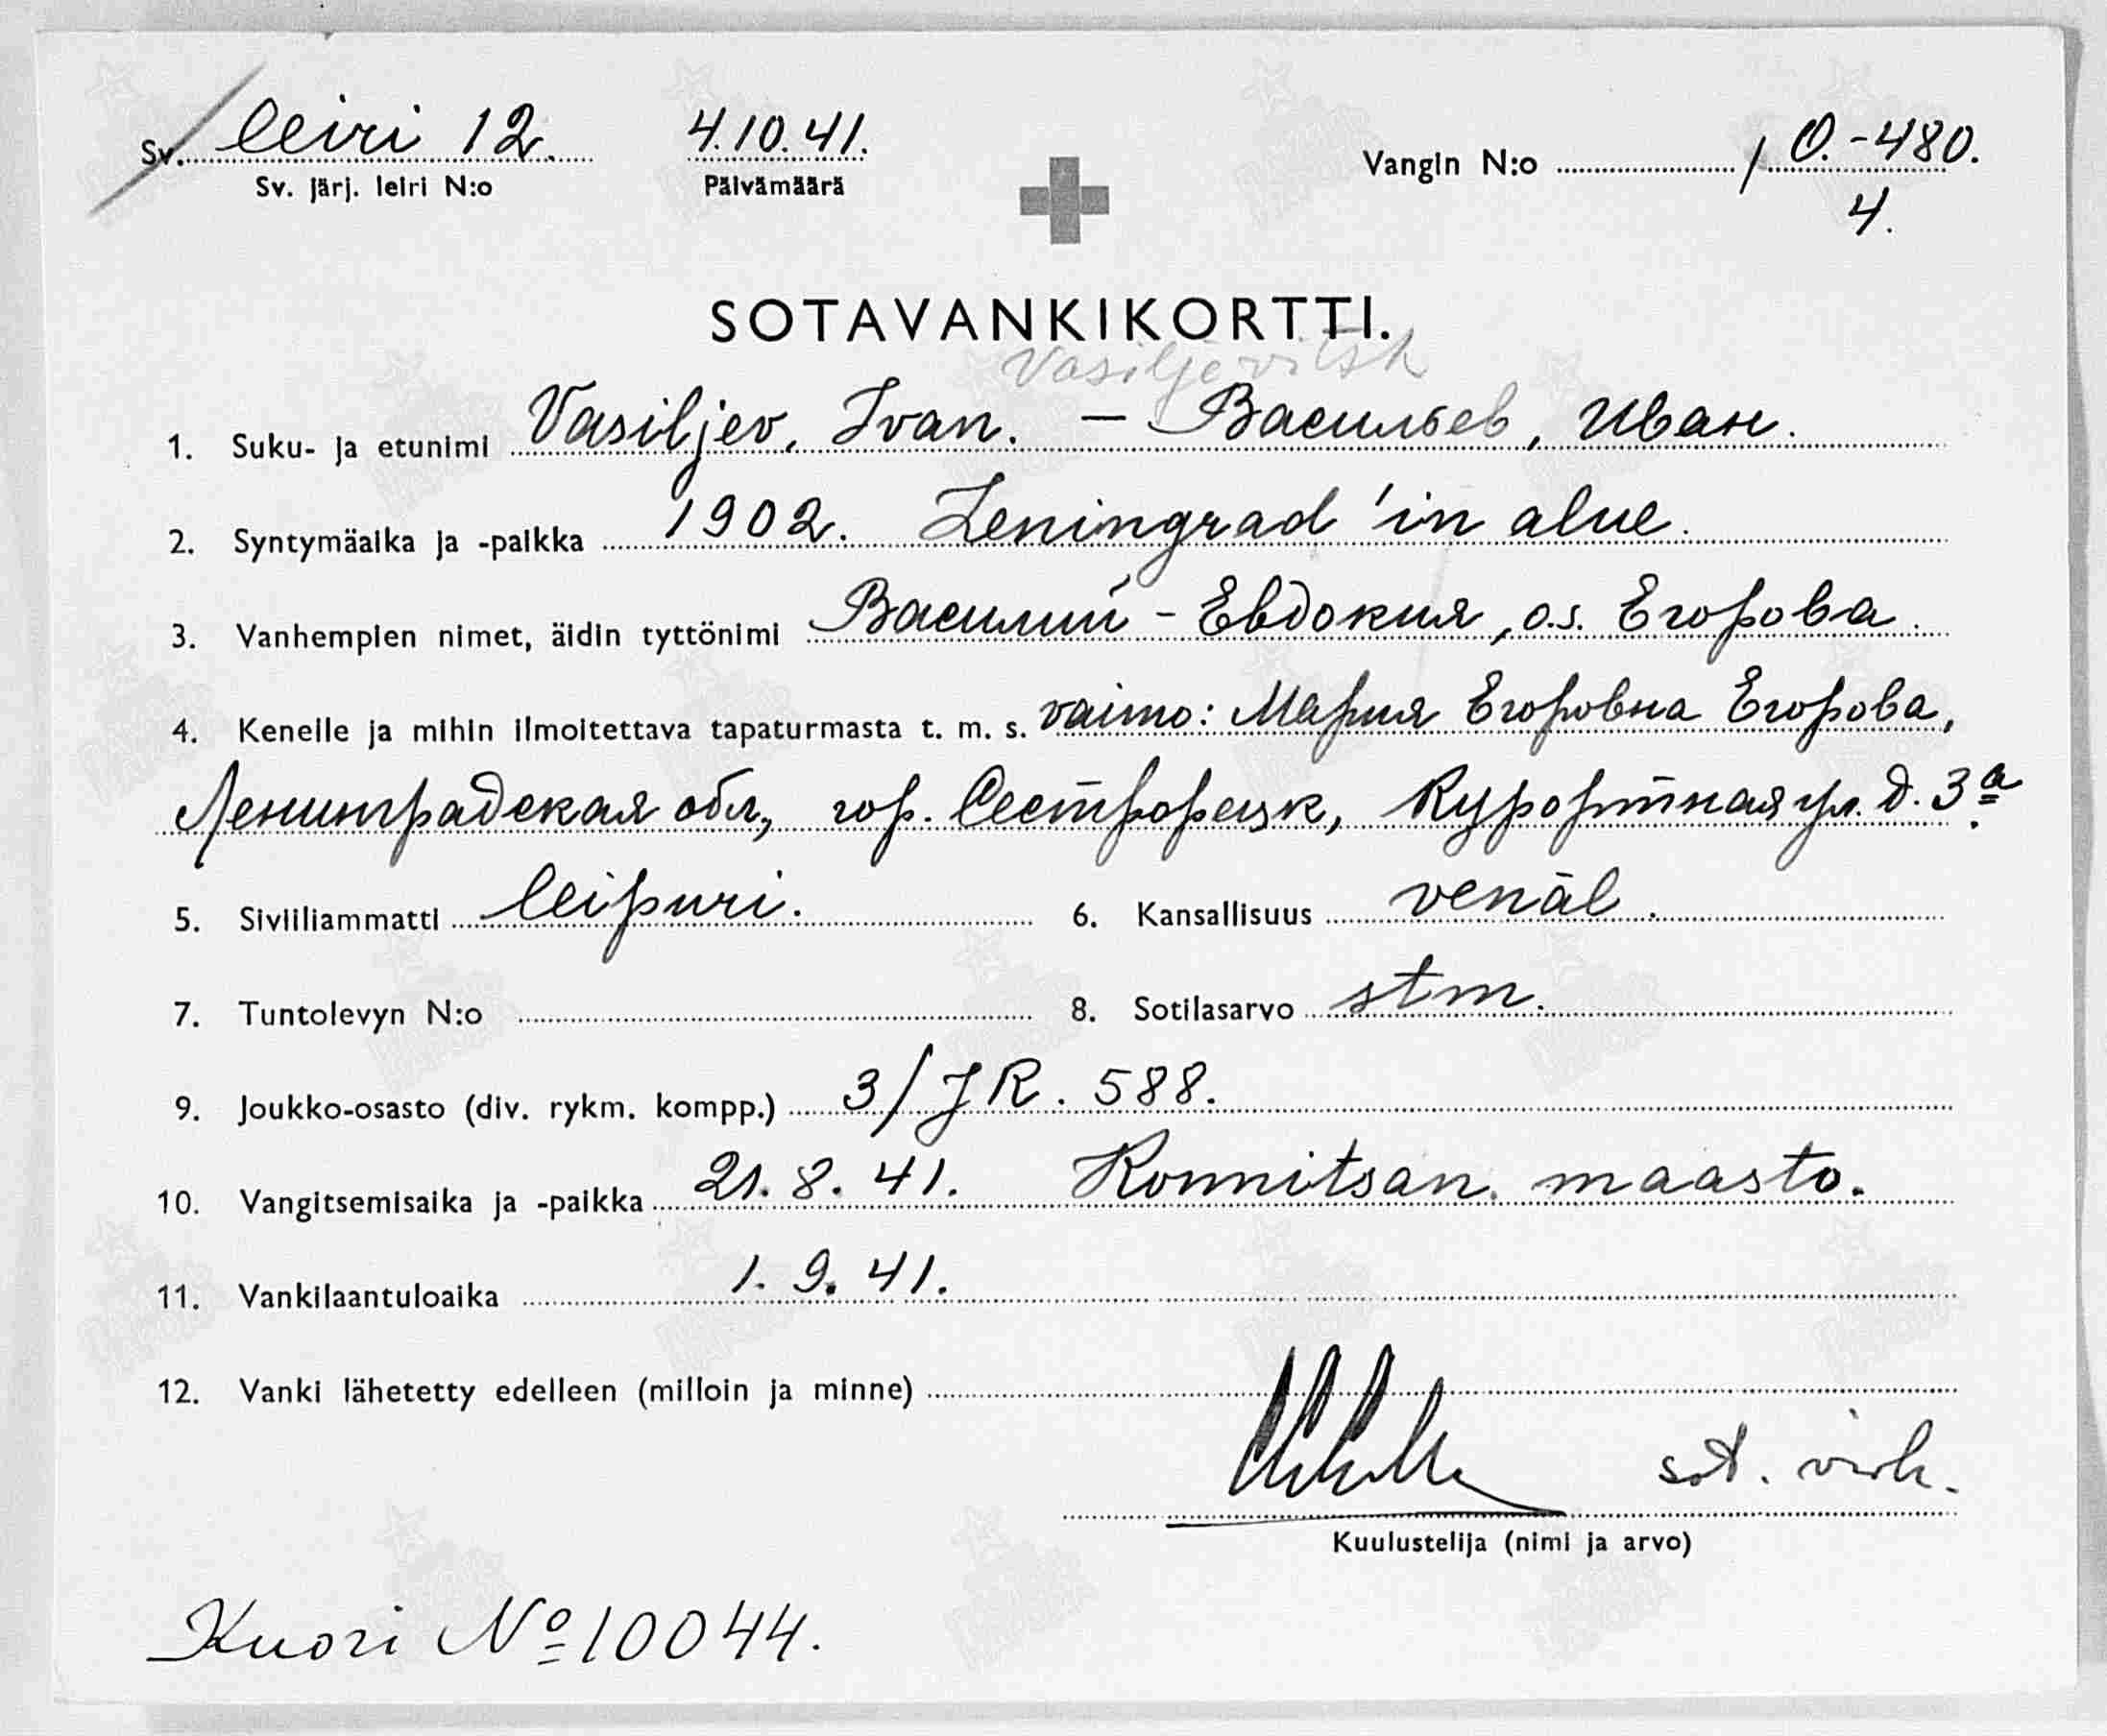 Sv. leiri 12. 4.10.41. Vangin N:o / O.-480.
Sv. järj. leiri N:o Päivämäärä 4.
SOTAVANKIKORTTI.
Vasiljevitsh
1. Suku- ja etunimi Vasiljev, Ivan. — Васильев, Иван.
2. Syntymäaika ja -paikka 1902. Leningrad'in alue.
3. Vanhempien nimet, äidin tyttönimi Василий - Евдокия, o.s. Егорова.
4. Kenelle ja mihin ilmoitettava tapaturmasta t. m. s. vaimo: Мария Егоровна Егорова,
Ленинградская обл., гор. Сестрорецк, Курортная ул. д. 3а.
5. Siviiliammatti leipuri. 6. Kansallisuus venäl.
7. Tuntolevyn N:o 8. Sotilasarvo stm.
9. Joukko-osasto (div. rykm. kompp.) 3/JR. 588.
10. Vangitsemisaika ja -paikka 21.8.41. Konnitsan maasto.
11. Vankilaantuloaika 1.9.41.
12. Vanki lähetetty edelleen (milloin ja minne)
sot. virk.
Kuulustelija (nimi ja arvo)
Kuori № 10044.